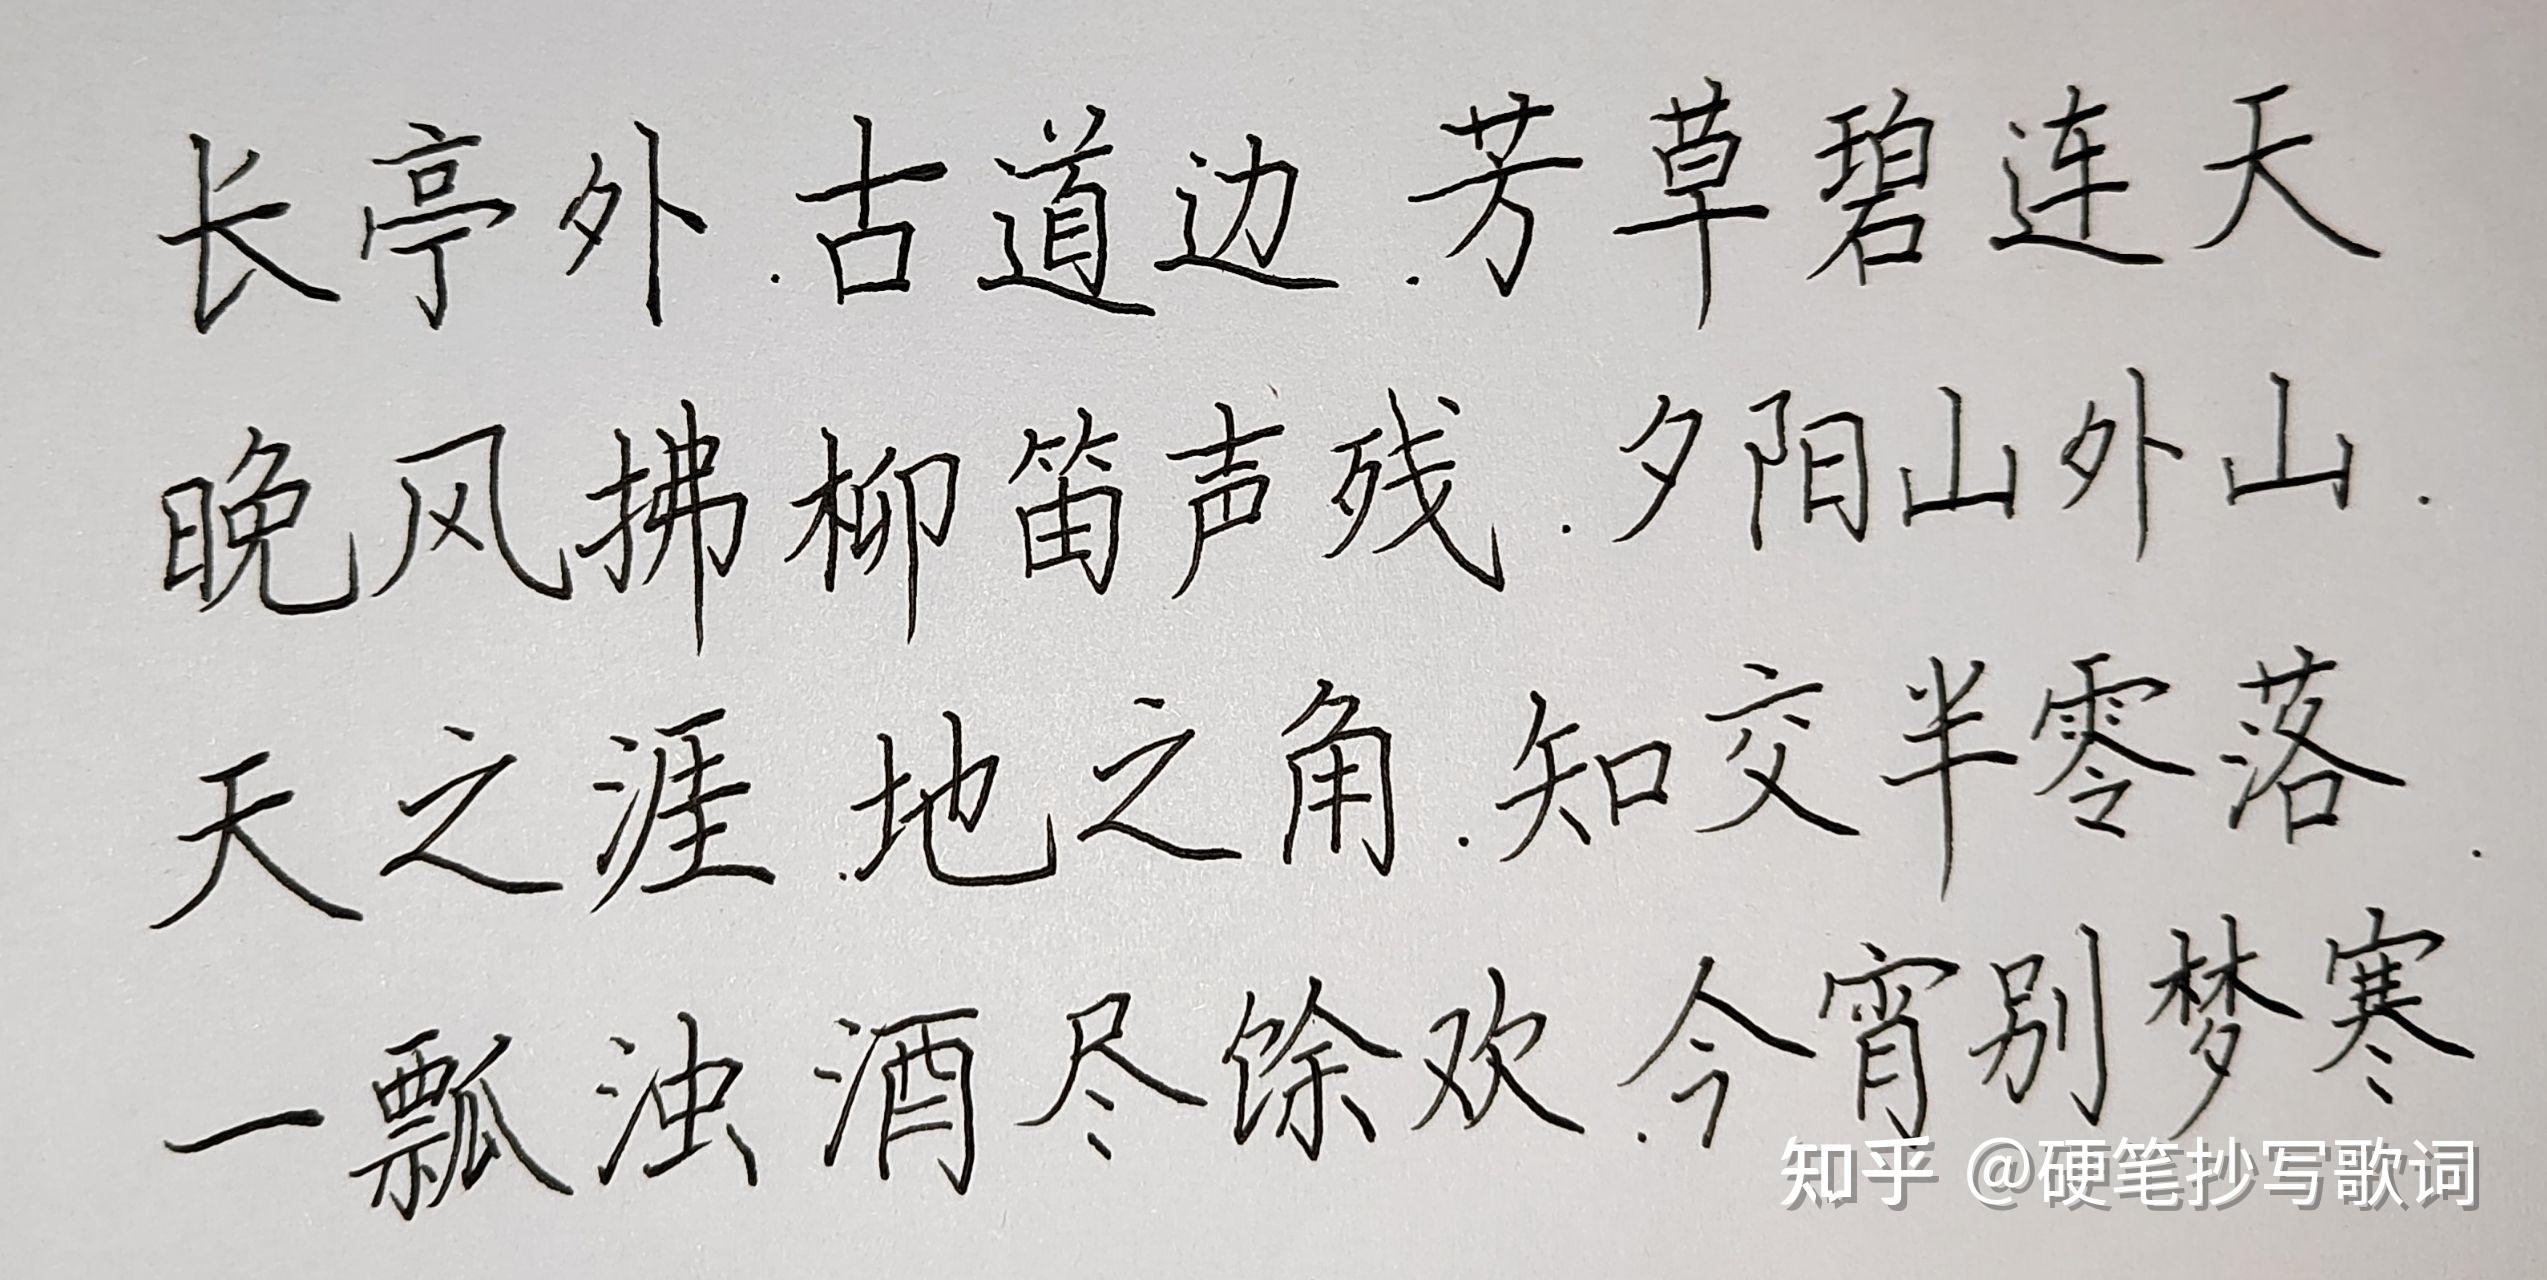 长亭外.古道边.芳草碧连天
晚风拂柳笛声残.夕阳山外山.
天之涯.地之角.知交半零落.
一瓢浊酒尽馀欢.今宵别梦寒
知乎 @硬笔抄写歌词